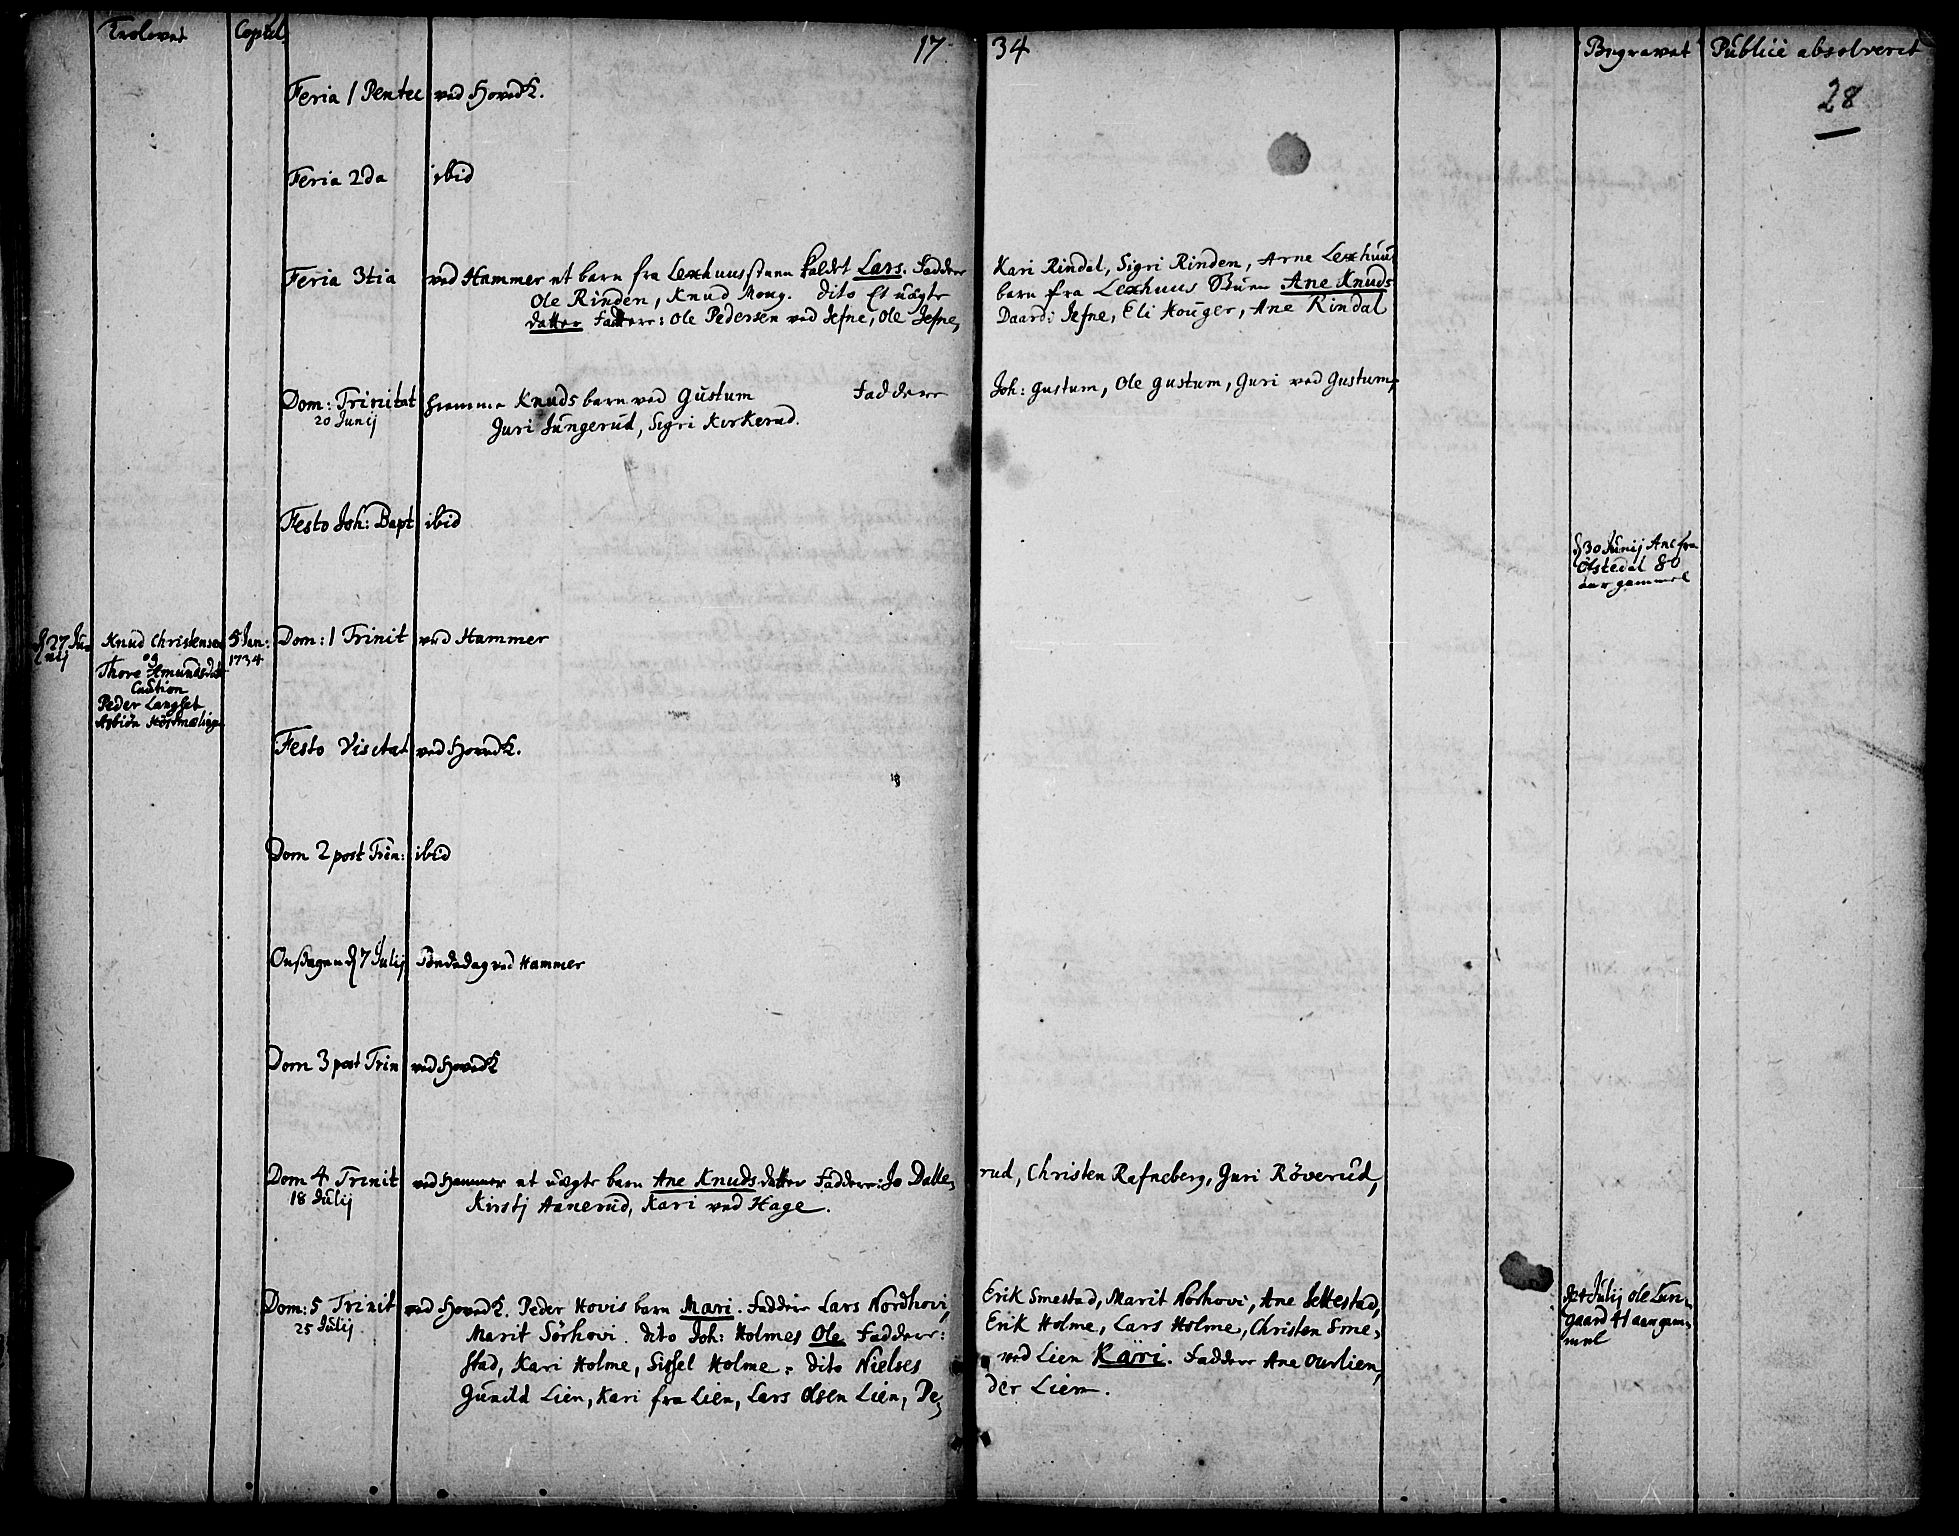 Trolovet Copul. 17 34 Begravet Publicè absolveret
28
Feria 1 Pentec ved Hovedk.
Feria 2da ibid
Feria 3tia ved Hammer et barn fra Lexhuus kaldet Lars. Faddere Kari Rindal, Sigri Rinden, Arne Lexhuus
Ole Rinden, Knud Moug. dito Et uægte barn fra Lexhuus Ane Knuds
datter Faddere: Ole Pedersen ved Jefne, Ole Jefne, Daard: Jefne, Eli Houger, Ane Rindal
Dom: Trinitat Fremme Knuds barn ved Gustum Faddere Joh: Gustum, Ole Gustum, Guri ved Gustum,
20 Junij Juri Jungerud, Sigri Kirkerud.
Festo Joh: Bapt ibid
d 30 Junij Ane fra
Ofstedal 80
aar gammel
d 27 Ju- Knud Christensen 5 Jan: Dom: 1 Trinit ved Hammer
nij og 1734
Thore Amundsdatt
Caution
Peder Langset
Festo Visitat ved Hovedk.
Dom 2 post Trin: ibid
Onsdagen d 7 Julij ved Hammer
Dom 3 post Trin ved Hovedk
Dom 4 Trinit ved Hammer et uægte barn Ane Knudsdatter Faddere: Jo Dalle, rud, Christen Rafneberg, Guri Röverud,
18 Julij Kirstj Aanerud, Kari ved Hage.
Dom: 5 Trinit ved Hovedk. Peder Hovis barn Mari. Faddere Lars Nordhovi, Erik Smestad, Marit Norhovi, Ane Jettestad,
25 Julij Marit Sörhovi. dito Joh: Holmes Ole Faddere: Erik Holme, Lars Holme, Christen Sme,
stad, Kari Holme, Sissel Holme. dito Nielses ved Lien Kari. Faddere Ane Ourlien,
Gunild Lien, Kari fra Lien, Lars Olsen Lien, Pe, der Lien.
d 24 Julij Ole Lun-
gaard 41 aar gam-
mel